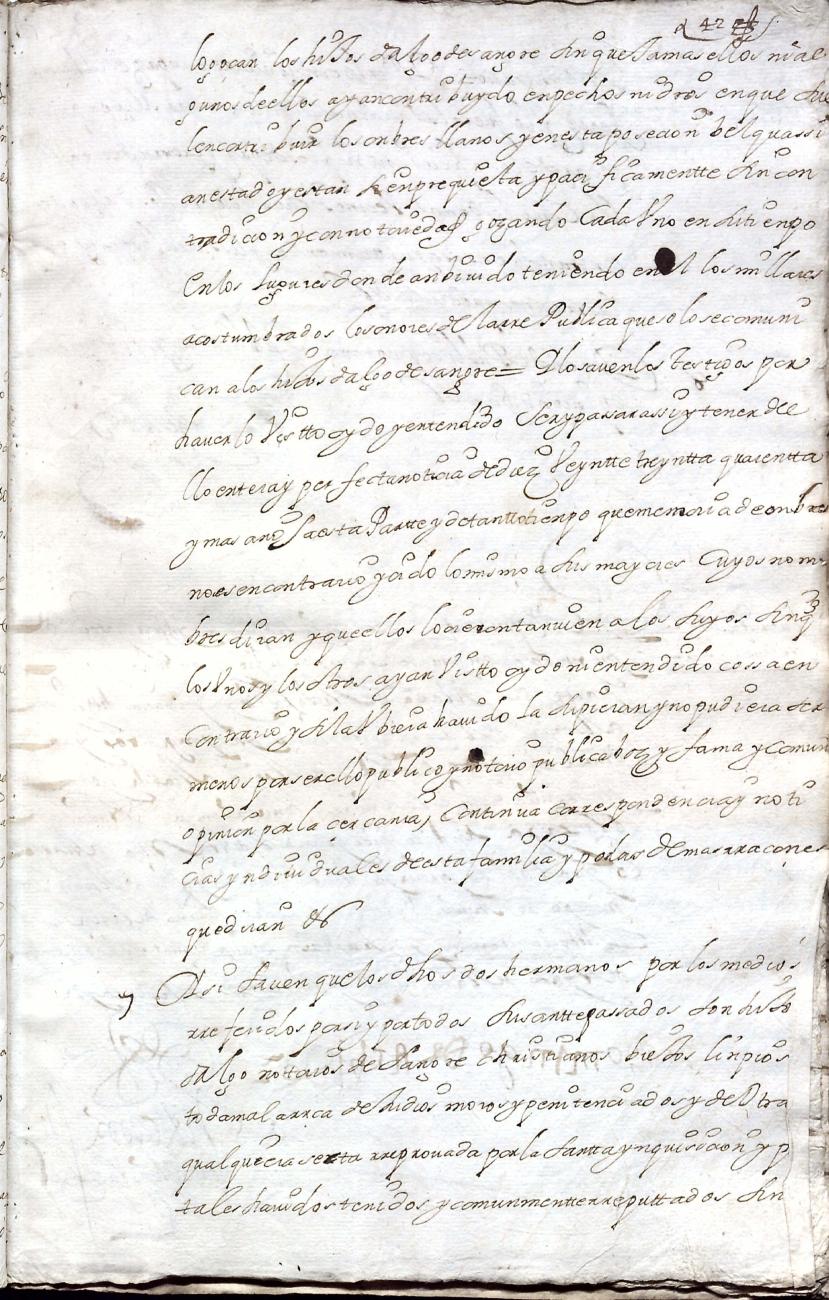 42
lo goçan los hijos dalgo de sangre sin que Jamas ellos ni al
gunos de ellos ayan contribuydo en pechos ni dros en que sue
len contribuir los onbres llanos y en esta posecion bel quassi
an estado y estan sienpre quieta y pacificamentte sin con
tradicion y con notoriedad goçando Cada Vno en su tienpo
En los Lugares donde an biuido teniendo en el los mi llares
acostumbrados los onores de la rre Publica que solo se comuni
can a los hijos dalgo de sangre = Y lo sauen los Testigos por
hauerlo Vistto oydo y entendido Ser y pasar assi y tener de e
llo entera y perfecta noticia de diez Veyntte treyntta quarentta
y mas años a esta Partte y de tantto tienpo que memoria de onbres
no es en contrario y oido lo mismo a sus mayores Cuyos nom
bres diran y que ellos lo oieron tanuien a los suyos sin q
los Vnos y los otros ayan Vistto oydo ni entendido cossa en
Contrario y si la Vbiera hauido la supieran y no pudiera ser
menos por ser ello publico y notorio publica boz y fama y comun
opinion por la cercania, Continua correspondencia y noti
cias yndiuiduales de esta familia y por las demas rraçones
que diran &
7 Y si sauen que los dhos dos hermanos por los medios
rreferidos por si y por todos sus anttepassados son hijos
dalgo notorios de Sangre christianos biejos linpios
de toda mala rraca de Judios moros y penitenciados y de otra
qualquiera secta rreprouada por la santta ynquisicion y p
tales hauidos tenidos y comunmentte rreputtados sin